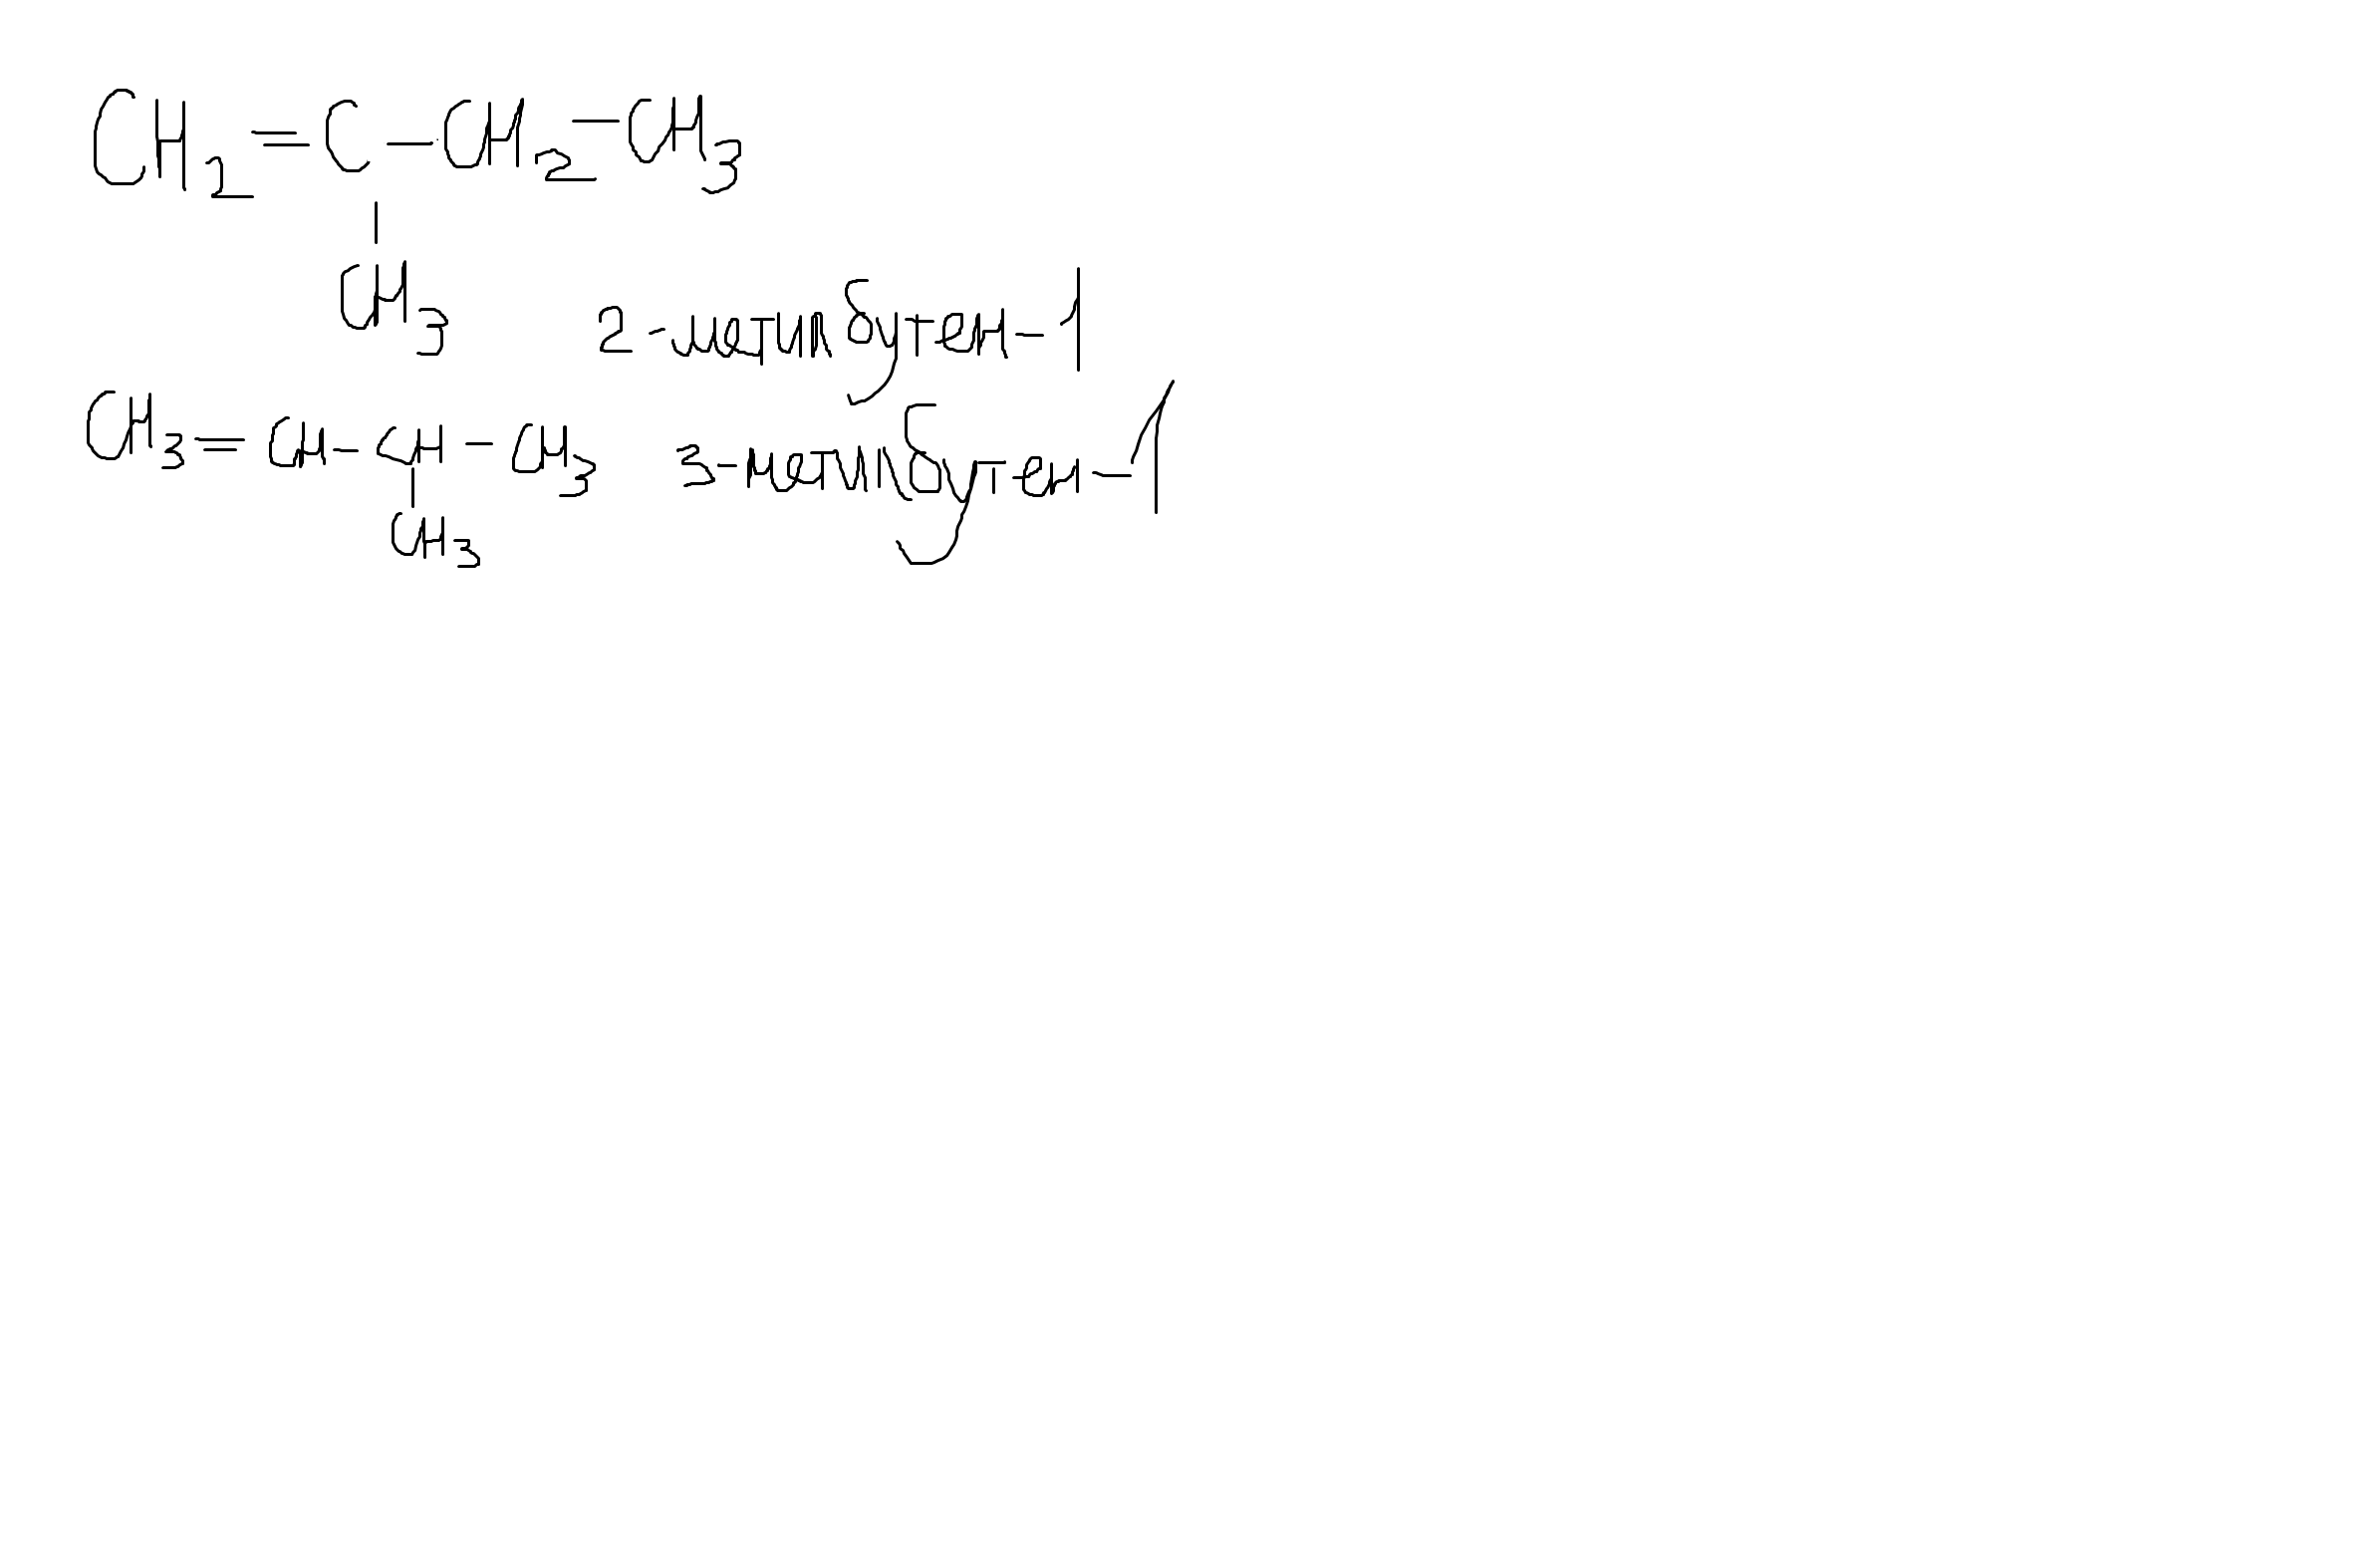 CH2=C-CH2-CH3
CH3
2-метилбутен-1
CH3=CH-CH-CH3 3-метилбутен-1
CH3